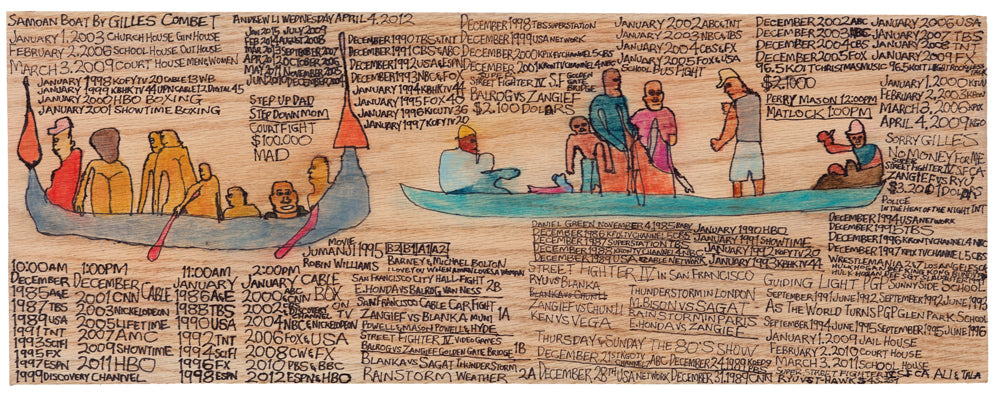 SAMOAN BOAT BY GILLES COMBET
JANUARY 1. 2003 CHURCH HOUSE GEN HOUSE
FEBRUARY 2. 2006 SCHOOL HOUSE OUT HOUSE
MARCH 3. 2009 COURT HOUSE MEN & WOMEN
JANUARY 1998 KOFY TV 20 CABLE 13 WB
JANUARY 1999 KBHK TV 44 UPN CABLE 12 DIGITAL 45
JANUARY 2000 HBO BOXING
JANUARY 2001 SHOWTIME BOXING
ANDREW LI WEDNESDAY APRIL 4. 2012
STEP UP DAD
STEP DOWN MOM
COURT FIGHT
$100.000
MAD
DECEMBER 1990 TBS & TNT
DECEMBER 1991 CBS & ABC
DECEMBER 1992 USA & ESPN
DECEMBER 1993 NBC & FOX
JANUARY 1994 KBHK 44
JANUARY 1995 FOX 40
JANUARY 1996 KICU 36
JANUARY 1997 KOFY 20
DECEMBER 1998 TBS SUPERSTATION
DECEMBER 1999 USA NETWORK
DECEMBER 2000 KPIX TV CHANNEL 5 CBS
DECEMBER 2001 KRON TV CHANNEL 4 NBC
SUPER
STREET FIGHTER IV S.F.
GOLDEN GATE BRIDGE
BALROG VS ZANGIEF
$2.100 DOLLARS
JANUARY 2002 ABC & TNT
JANUARY 2003 NBC & TBS
JANUARY 2004 CBS & FX
JANUARY 2005 FOX & USA
SCHOOL BUS FIGHT
DECEMBER 2002 ABC
DECEMBER 2003 NBC
DECEMBER 2004 CBS
DECEMBER 2005 FOX
$2.1000
PERRY MASON 12:00PM
MATLOCK 1:00PM
JANUARY 2006 USA
JANUARY 2007 TBS
JANUARY 2008 TNT
JANUARY 2009 FX
JANUARY 1. 2000 KTVU
FEBRUARY 2. 2003 KRON
MARCH 3. 2006 KPIX
APRIL 4. 2009 KGO
SORRY GILLES
NO MONEY FOR ME
SUPER
STREET FIGHTER IV S.F. CA
ZANGIEF VS RYU
$3.200 DOLLARS
POLICE
IN THE HEAT OF THE NIGHT TNT
DECEMBER 1994 USA NETWORK
DECEMBER 1995 TBS
DECEMBER 1996 KRON TV CHANNEL 4 NBC
DECEMBER 1997 KPIX TV CHANNEL 5 CBS
WRESTLEMANIA 27 LOS ANGELES CA
GUIDING LIGHT PGP SUNNYSIDE SCHOOL
SEPTEMBER 1991 JUNE 1992 SEPTEMBER 1992 JUNE 1993
AS THE WORLD TURNS PGP GLEN PARK SCHOOL
SEPTEMBER 1994 JUNE 1995 SEPTEMBER 1995 JUNE 1996
JANUARY 1. 2009 JAIL HOUSE
FEBRUARY 2. 2010 COURT HOUSE
MARCH 3. 2011 SCHOOL HOUSE
10:00AM
DECEMBER
1985 A&E
1987 TBS
1989 USA
1991 TNT
1993 SCIFI
1995 FX
1997 ESPN
1999 DISCOVERY CHANNEL
1:00PM
DECEMBER CABLE
2001 CNN
2003 NICKELODEON
2005 LIFETIME
2007 AMC
2009 SHOWTIME
2011 HBO
11:00AM
JANUARY
1986 A&E
1988 TBS
1990 USA
1992 TNT
1994 SCIFI
1996 FX
1998 ESPN
2:00PM
JANUARY CABLE
2000 CNN
2004 NBC & NICKELODEON
2006 FOX & USA
2008 CW & FX
2010 PBS & BBC
2012 ESPN & HBO
MOVIE
JUMANJI 1995
ROBIN WILLIAMS
BARNEY & MICHAEL BOLTON
SAN FRANCISCO CITY HALL FIGHT
E. HONDA VS BALROG VAN NESS 2B
SAN FRANCISCO CABLE CAR FIGHT
ZANGIEF VS BLANKA MUNI 1A
POWELL & MASON POWELL & HYDE
STREET FIGHTER IV VIDEO GAMES
BALROG VS ZANGIEF GOLDEN GATE BRIDGE 1B
BLANKA VS SAGAT THUNDERSTORM
RAINSTORM WEATHER 2A
DANIEL GREEN NOVEMBER 4. 1985 BABY
DECEMBER 1986 KPIX TV CHANNEL 5 CBS
DECEMBER 1987 SUPERSTATION TBS
DECEMBER 1988 KRON TV CHANNEL 4 NBC
DECEMBER 1989 USA CABLE NETWORK
JANUARY 1990 HBO
JANUARY 1991 SHOWTIME
JANUARY 1992 KOFY TV 20
JANUARY 1993 KBHK TV 44
STREET FIGHTER IV IN SAN FRANCISCO
RYU VS BLANKA
BLANKA VS CHUN LI
ZANGIEF VS CHUN LI
KEN VS VEGA
THUNDERSTORM IN LONDON
M. BISON VS SAGAT
RAINSTORM IN PARIS
E. HONDA VS ZANGIEF
THURSDAY & SUNDAY THE 80'S SHOW
DECEMBER 28TH USA NETWORK DECEMBER 31. 1989 CNN
ALI & TALA